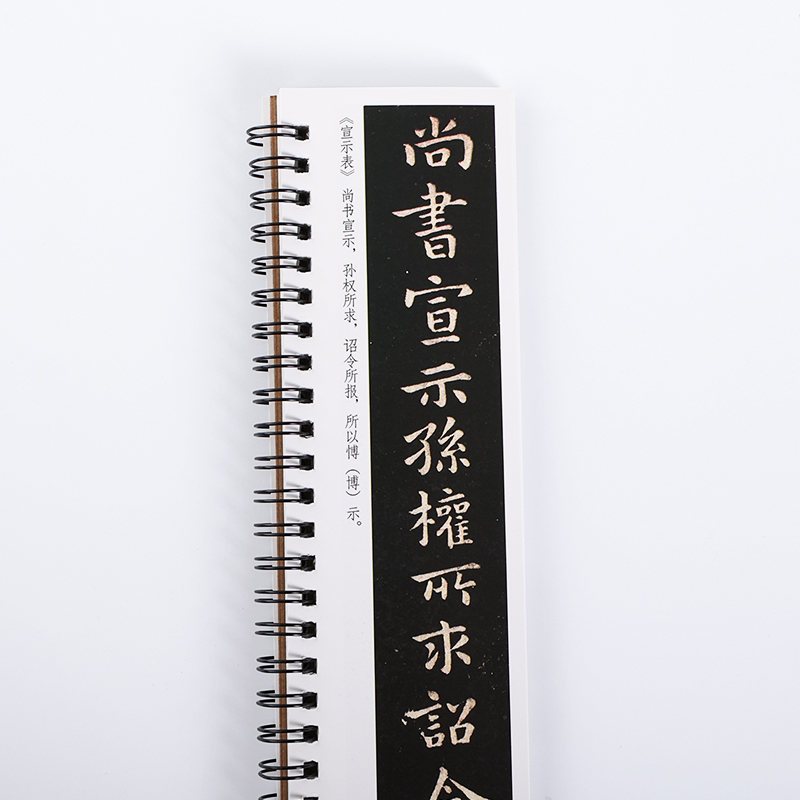 《宣示表》 尚书宣示，孙权所求，诏令所报，所以愽（博）示。
尚書宣示孫權所求詔令